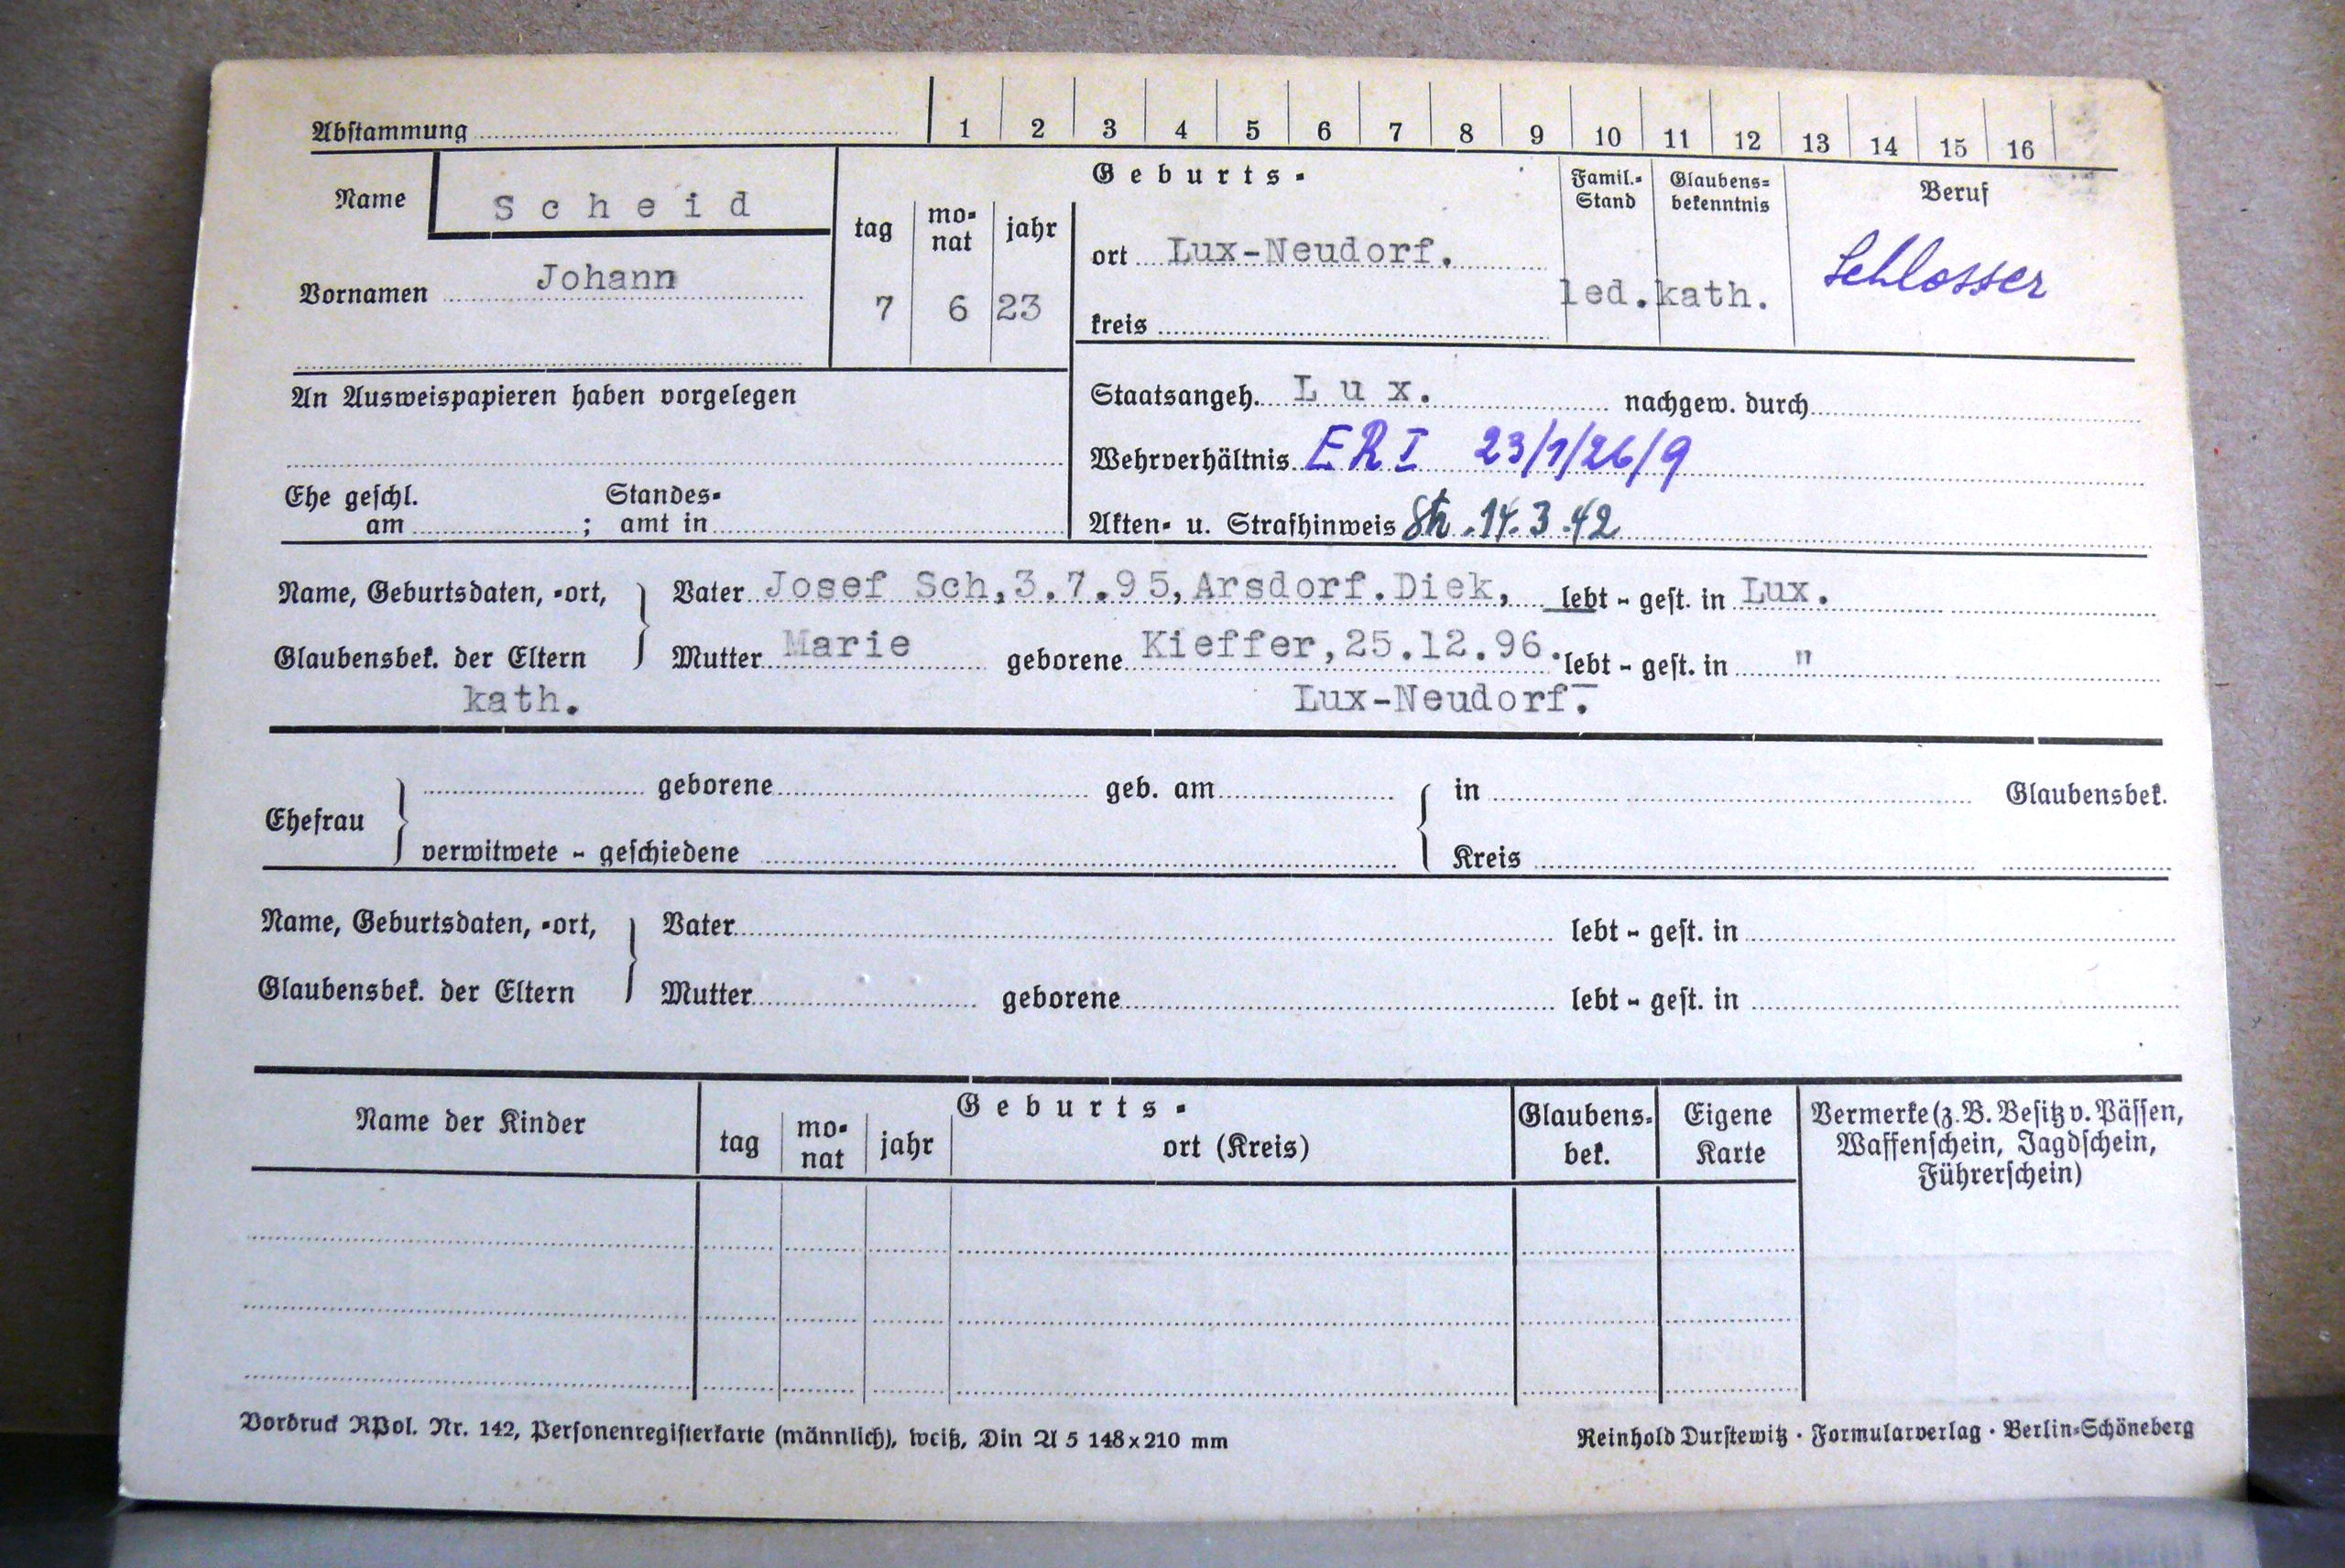 Abstammung 1 2 3 4 5 6 7 8 9 10 11 12 13 14 15 16
Name Scheid
Vornamen Johann
Geburts-
tag monat jahr
7 6 23
ort Lux-Neudorf.
kreis
Famil.-Stand
led.
Glaubens-bekenntnis
kath.
Beruf
Schlosser
An Ausweispapieren haben vorgelegen
Staatsangeh. Lux. nachgew. durch
Wehrverhältnis ER I 23/1/26/9
Ehe geschl. am ; Standes-amt in
Akten- u. Strafhinweis 14.3.42
Name, Geburtsdaten, -ort, Vater Josef Sch,3.7.95,Arsdorf.Diek, lebt - gest. in Lux.
Glaubensbek. der Eltern Mutter Marie geborene Kieffer,25.12.96. lebt - gest. in "
kath. Lux-Neudorf.
Ehefrau geborene geb. am in Glaubensbek.
verwitwete - geschiedene Kreis
Name, Geburtsdaten, -ort, Vater lebt - gest. in
Glaubensbek. der Eltern Mutter geborene lebt - gest. in
Name der Kinder
Geburts-
tag monat jahr ort (Kreis)
Glaubens-bek.
Eigene Karte
Vermerke (z.B. Besitz v. Pässen,
Waffenschein, Jagdschein,
Führerschein)
Vordruck RPol. Nr. 142, Personenregisterkarte (männlich), weiß, Din A 5 148x210 mm
Reinhold Durstewitz · Formularverlag · Berlin-Schöneberg